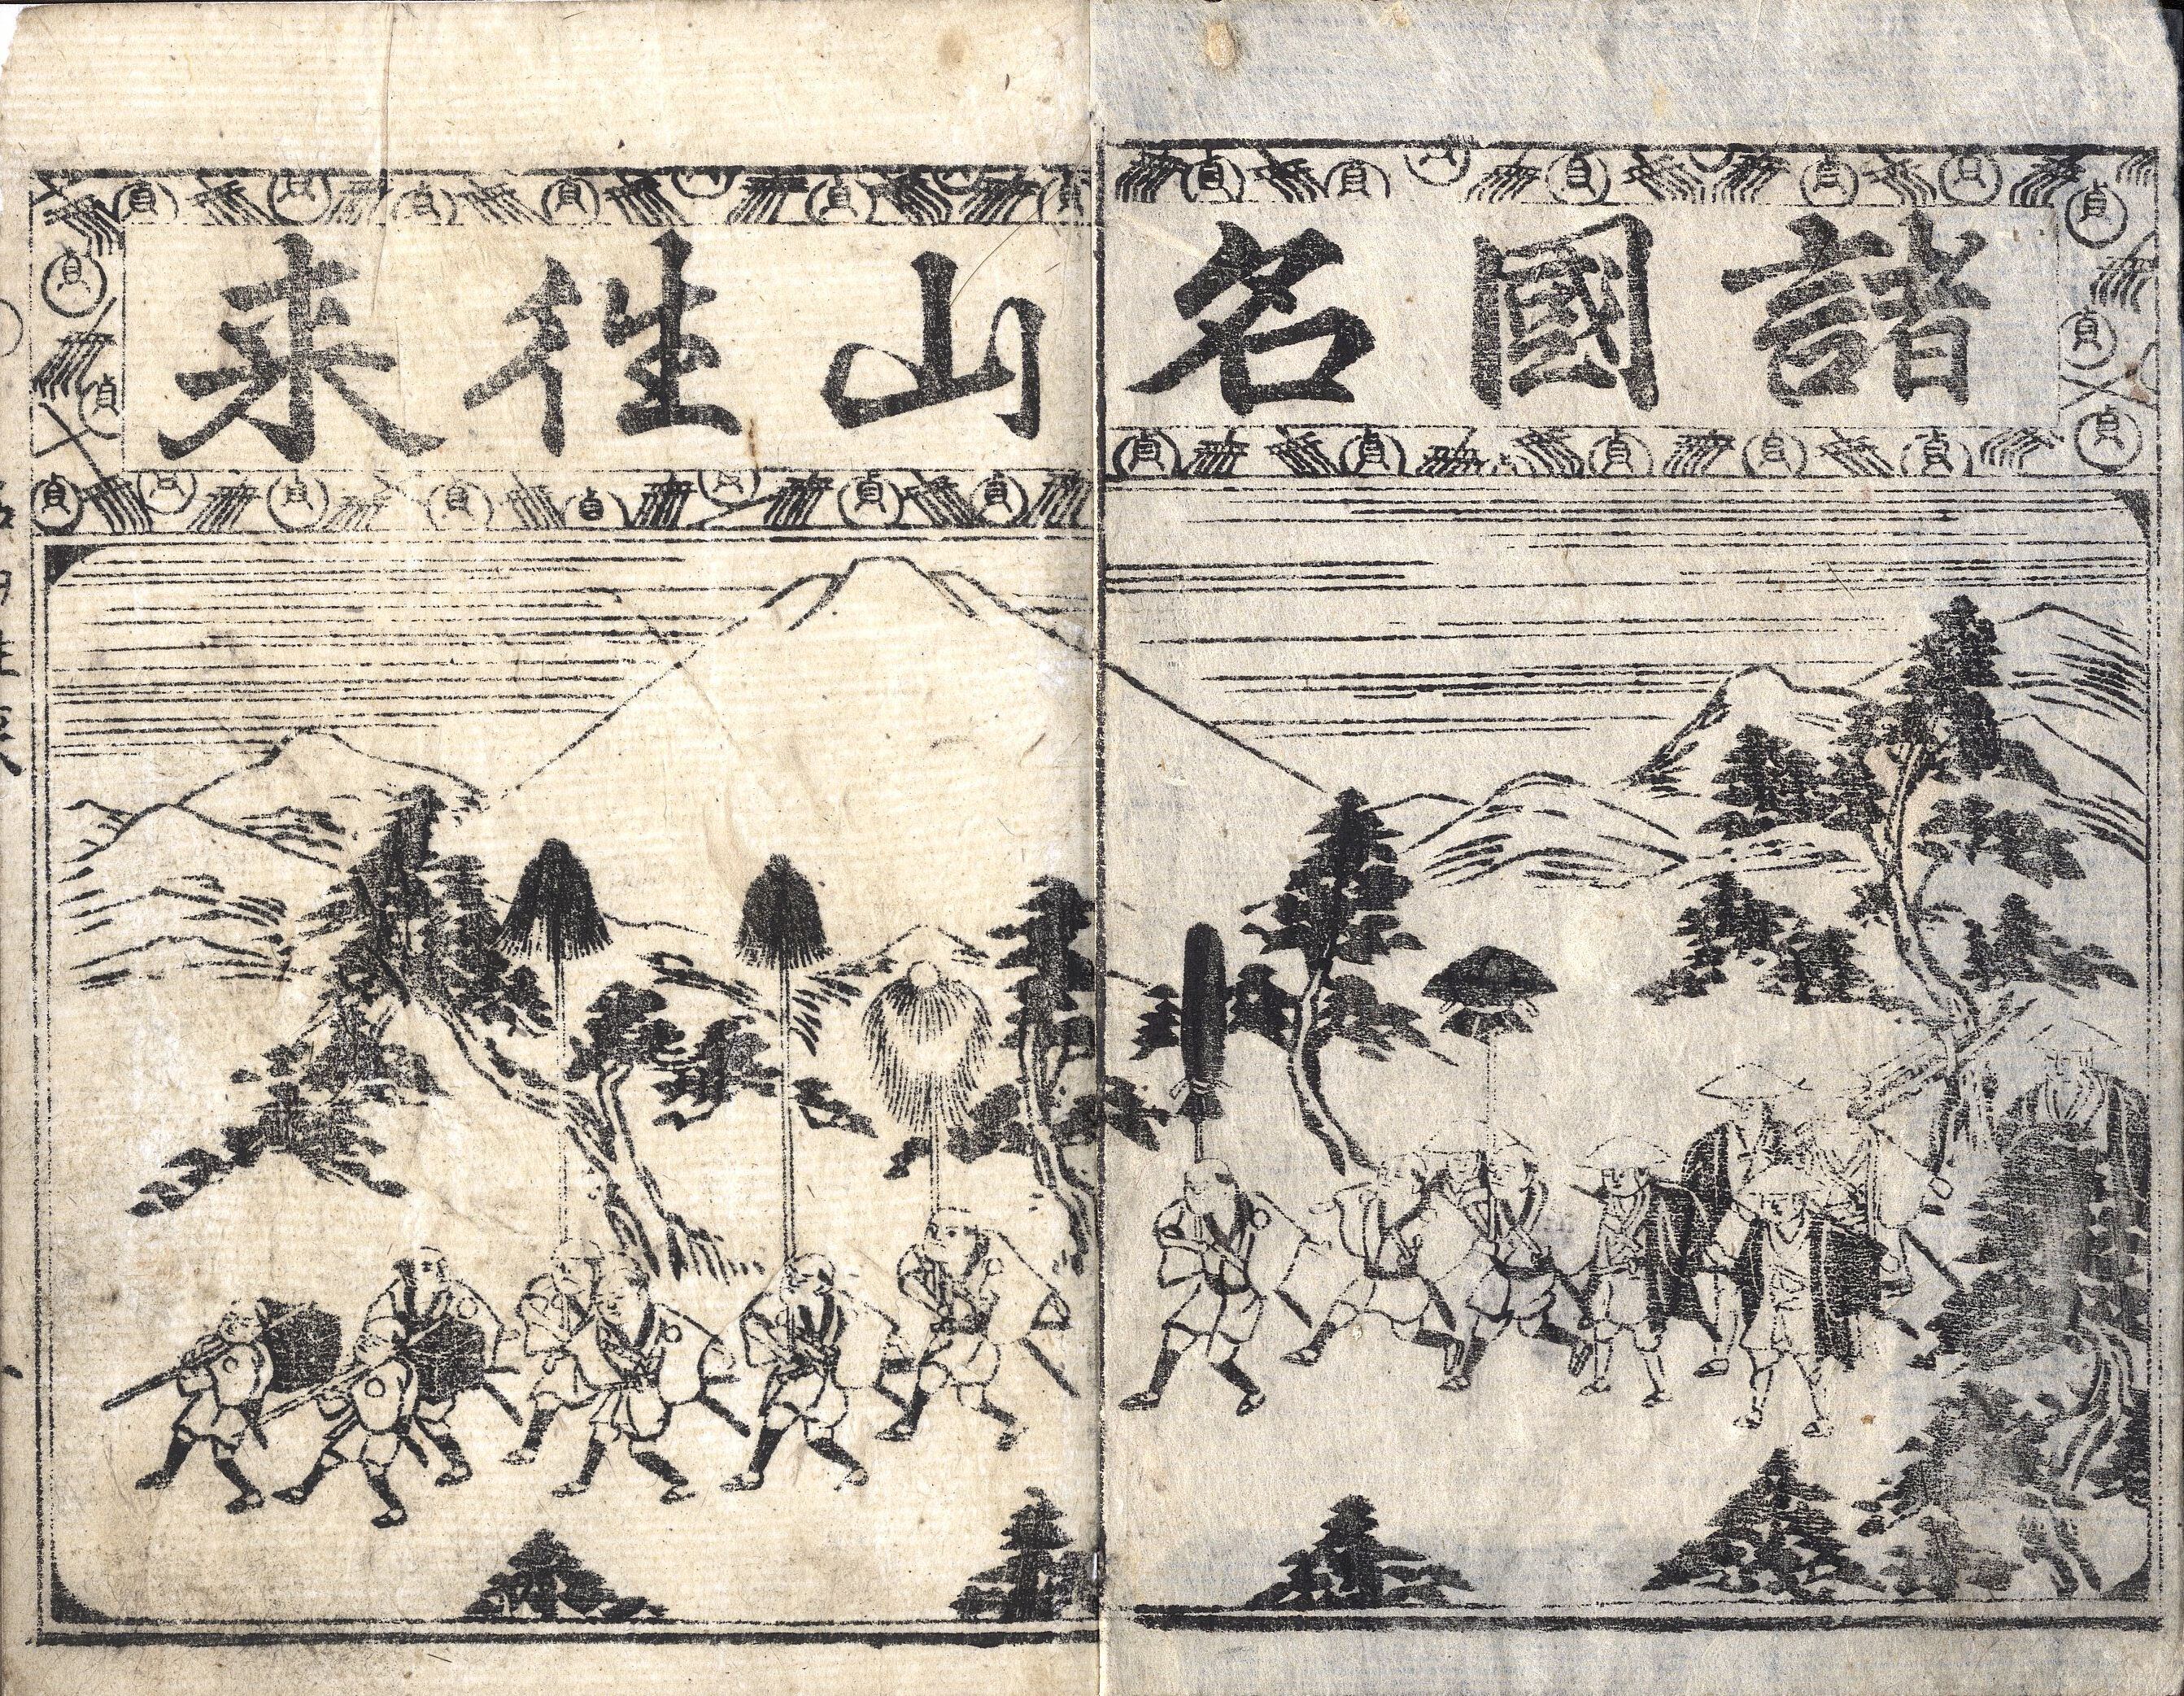 諸國名山往来